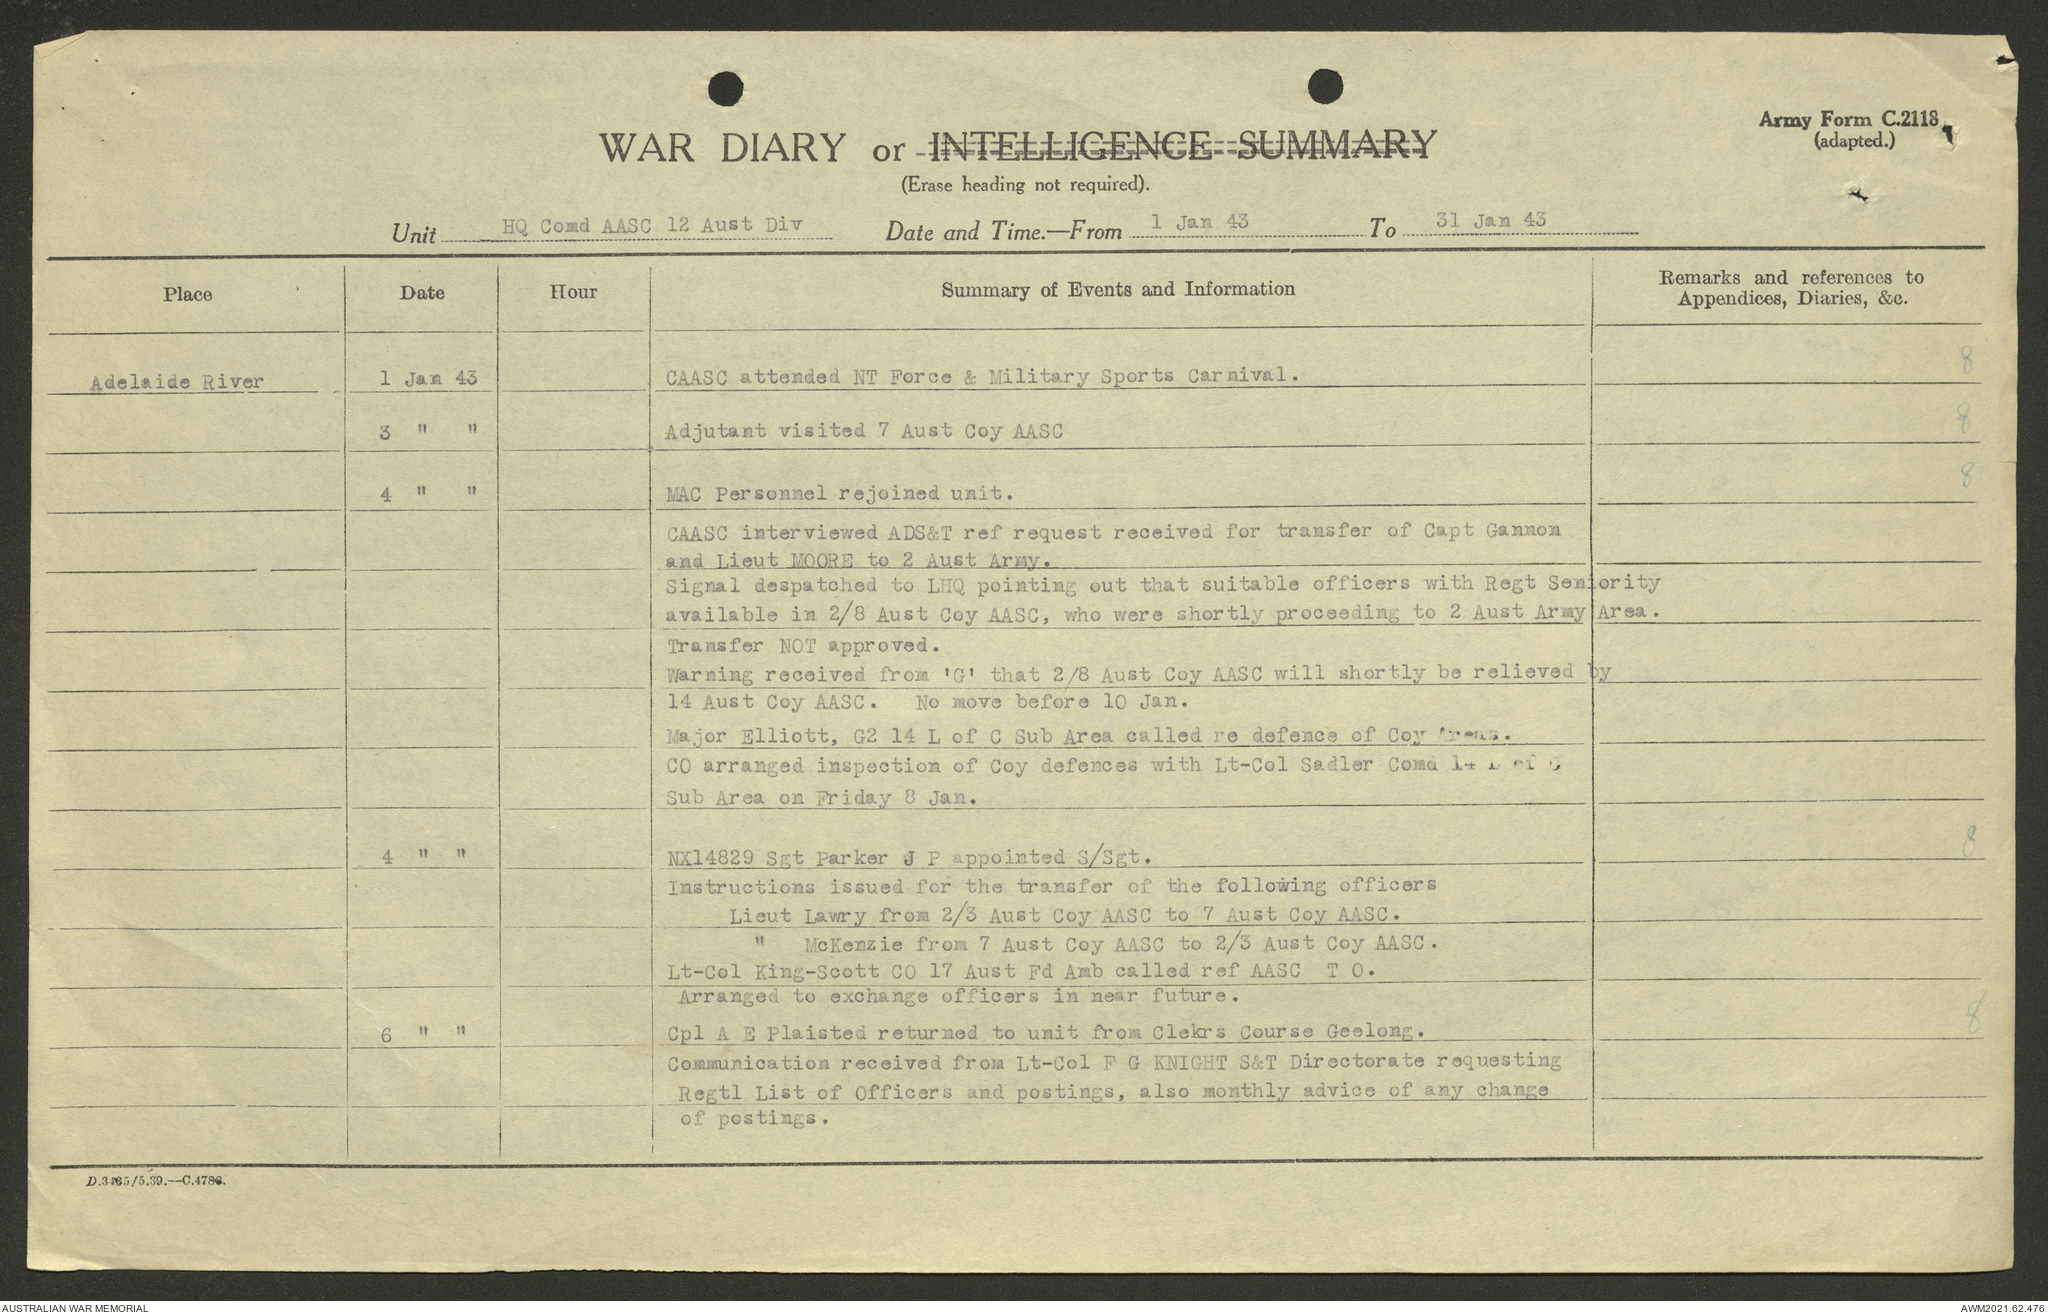 Army Form C.2118.
(adapted.)
WAR DIARY or INTELLIGENCE SUMMARY
(Erase heading not required).
Unit HQ Comd AASC 12 Aust Div Date and Time.—From 1 Jan 43 To 31 Jan 43
Place Date Hour Summary of Events and Information Remarks and references to
Appendices, Diaries, &c.
Adelaide River 1 Jan 43 CAASC attended NT Force & Military Sports Carnival. 8
3 " " Adjutant visited 7 Aust Coy AASC 8
4 " " MAC Personnel rejoined unit. 8
CAASC interviewed ADS&T ref request received for transfer of Capt Gannon
and Lieut MOORE to 2 Aust Army.
Signal despatched to LHQ pointing out that suitable officers with Regt Seniority
available in 2/8 Aust Coy AASC, who were shortly proceeding to 2 Aust Army Area.
Transfer NOT approved.
Warning received from 'G' that 2/8 Aust Coy AASC will shortly be relieved by
14 Aust Coy AASC. No move before 10 Jan.
Major Elliott, G2 14 L of C Sub Area called re defence of Coy Areas.
CO arranged inspection of Coy defences with Lt-Col Sadler Comd 14 L of C
Sub Area on Friday 8 Jan.
4 " " NX14829 Sgt Parker J P appointed S/Sgt. 8
Instructions issued for the transfer of the following officers
Lieut Lawry from 2/3 Aust Coy AASC to 7 Aust Coy AASC.
" McKenzie from 7 Aust Coy AASC to 2/3 Aust Coy AASC.
Lt-Col King-Scott CO 17 Aust Fd Amb called ref AASC T O.
Arranged to exchange officers in near future.
6 " " Cpl A E Plaisted returned to unit from Clekrs Course Geelong. 8
Communication received from Lt-Col F G KNIGHT S&T Directorate requesting
Regtl List of Officers and postings, also monthly advice of any change
of postings.
D.3485/5.39.—C.4786.
AUSTRALIAN WAR MEMORIAL AWM2021.62.476